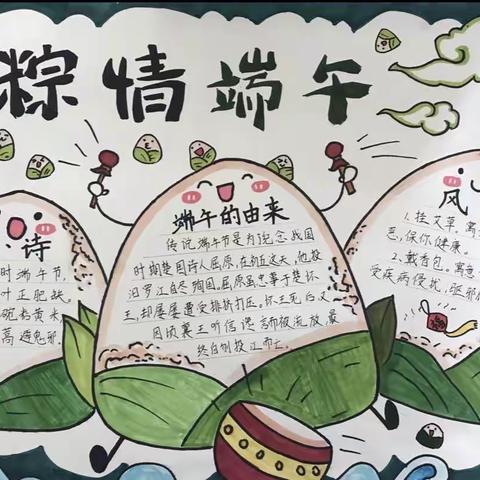 粽情端午
诗
时端午节,
叶正肥妖
高 避鬼邪.
端午的由来
传说端午节是为纪念战国
时期楚国诗人屈原,在初五这天,他投
汨罗江自尽殉国,屈原虽忠事于楚怀
王,却屡屡遭受排挤打压.怀王死后又
因顷襄王听信谗言而被流放,最
终自刎投江而亡.
风
1.挂艾草,寓
恙,保你健康.
2.戴香包.寓意
受疾病侵扰,驱邪